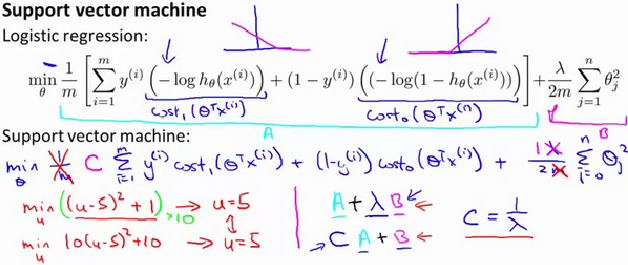 Support vector machine
Logistic regression:
min_θ 1/m [ Σ_{i=1}^{m} y^{(i)} (−log h_θ(x^{(i)})) + (1 − y^{(i)}) ((−log(1 − h_θ(x^{(i)}))) ] + λ/2m Σ_{j=1}^{n} θ_j^2
cost_1(θ^T x^{(i)}) cost_0(θ^T x^{(i)})
A B
Support vector machine:
min_θ 1/m C Σ_{i=1}^{m} y^{(i)} cost_1(θ^T x^{(i)}) + (1-y^{(i)}) cost_0(θ^T x^{(i)}) + 1/2m Σ_{j=0}^{n} θ_j^2
min_u (u-5)^2 + 1 ×10 → u=5 A + λ B ← C = 1/λ
min_u 10(u-5)^2 + 10 → u=5 → C A + B ←